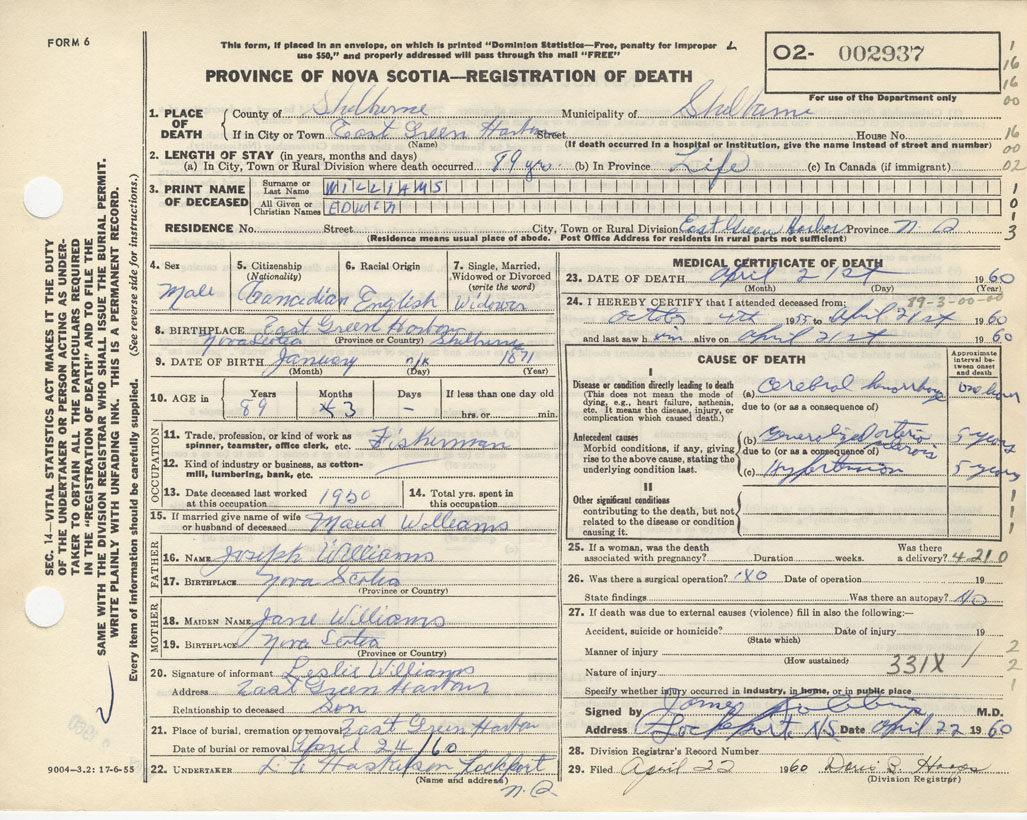 FORM 6
This form, if placed in an envelope, on which is printed "Dominion Statistics—Free, penalty for improper
use $50," and properly addressed will pass through the mail "FREE"
PROVINCE OF NOVA SCOTIA—REGISTRATION OF DEATH
O2- 002937
For use of the Department only
1. PLACE OF DEATH
County of Shelburne Municipality of Shelburne
If in City or Town East Green Harbour Street House No.
(Name) (If death occurred in a hospital or institution, give the name instead of street and number)
2. LENGTH OF STAY (in years, months and days)
(a) In City, Town or Rural Division where death occurred 89 yrs (b) In Province Life (c) In Canada (if immigrant)
3. PRINT NAME OF DECEASED
Surname or Last Name WILLIAMS
All Given or Christian Names EDWIN
RESIDENCE No. Street City, Town or Rural Division East Green Harbour Province N.S.
(Residence means usual place of abode. Post Office Address for residents in rural parts not sufficient)
4. Sex
Male
5. Citizenship
(Nationality)
Canadian
6. Racial Origin
English
7. Single, Married,
Widowed or Divorced
(write the word)
Widower
8. BIRTHPLACE East Green Harbour
Nova Scotia (Province or Country) Shelburne
9. DATE OF BIRTH January 1871
(Month) (Day) (Year)
10. AGE in
Years Months Days If less than one day old
89 3 - hrs. or min.
OCCUPATION
11. Trade, profession, or kind of work as
spinner, teamster, office clerk, etc. Fisherman
12. Kind of industry or business, as cotton-
mill, lumbering, bank, etc.
13. Date deceased last worked
at this occupation 1950
14. Total yrs. spent in
this occupation
15. If married give name of wife
or husband of deceased Maud Williams
FATHER
16. NAME Joseph Williams
17. BIRTHPLACE Nova Scotia
(Province or Country)
MOTHER
18. MAIDEN NAME Jane Williams
19. BIRTHPLACE Nova Scotia
(Province or Country)
20. Signature of informant Leslie Williams
Address East Green Harbour
Relationship to deceased Son
21. Place of burial, cremation or removal East Green Harbour
Date of burial or removal April 24/60
22. UNDERTAKER Lockeport
(Name and address)
N.S.
MEDICAL CERTIFICATE OF DEATH
23. DATE OF DEATH April 21st 1960
(Month) (Day) (Year)
89-3-00-00
24. I HEREBY CERTIFY that I attended deceased from:
4th 1955 to April 21st 1960
and last saw him alive on April 21st 1960
CAUSE OF DEATH
Approximate
interval be-
tween onset
and death
I
Disease or condition directly leading to death
(This does not mean the mode of
dying, e.g., heart failure, asthenia,
etc. It means the disease, injury, or
complication which caused death.)
(a) Cerebral hemorrhage
due to (or as a consequence of)
Antecedent causes
Morbid conditions, if any, giving
rise to the above cause, stating the
underlying condition last.
(b) Generalized arterio sclerosis 5 years
due to (or as a consequence of)
(c) Hypertension 5 years
II
Other significant conditions
contributing to the death, but not
related to the disease or condition
causing it.
25. If a woman, was the death
associated with pregnancy? Duration weeks. Was there
a delivery? 4210
26. Was there a surgical operation? No Date of operation 19
State findings Was there an autopsy? No
27. If death was due to external causes (violence) fill in also the following:—
Accident, suicide or homicide? Date of injury 19
(State which)
Manner of injury
(How sustained)
Nature of injury 331X
Specify whether injury occurred in industry, in home, or in public place
Signed by M.D.
Address Lockeport N.S. Date April 22 1960
28. Division Registrar's Record Number
29. Filed April 22 1960
(Division Registrar)
SEC. 14—VITAL STATISTICS ACT MAKES IT THE DUTY
OF THE UNDERTAKER OR PERSON ACTING AS UNDER-
TAKER TO OBTAIN ALL THE PARTICULARS REQUIRED
IN THE "REGISTRATION OF DEATH" AND TO FILE THE
SAME WITH THE DIVISION REGISTRAR WHO SHALL ISSUE THE BURIAL PERMIT.
WRITE PLAINLY WITH UNFADING INK. THIS IS A PERMANENT RECORD.
Every item of information should be carefully supplied. (See reverse side for instructions.)
9004—3.2: 17-6-55
1
16
16
00
16
00
02
1
0
1
3
1
1
1
1
2
2
1